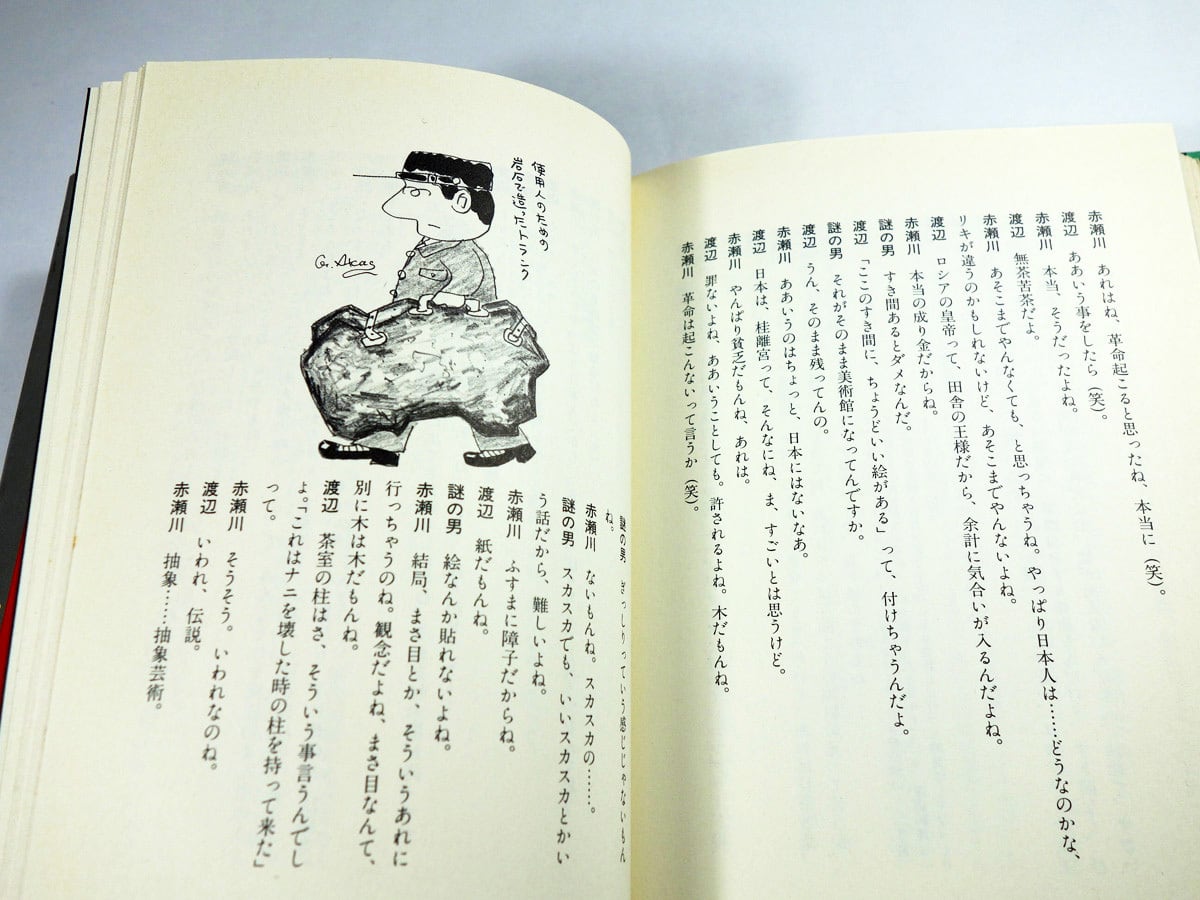 赤瀬川　あれはね、革命起こると思ったね、本当に（笑）。
渡辺　ああいう事をしたら（笑）。
赤瀬川　本当、そうだったよね。
渡辺　無茶苦茶だよ。
赤瀬川　あそこまでやんなくても、と思っちゃうね。やっぱり日本人は……どうなのかな、
リキが違うのかもしれないけど、あそこまでやんないよね。
渡辺　ロシアの皇帝って、田舎の王様だから、余計に気合いが入るんだよね。
赤瀬川　本当の成り金だからね。
謎の男　すき間あるとダメなんだ。
渡辺　「ここのすき間に、ちょうどいい絵がある」って、付けちゃうんだよ。
謎の男　それがそのまま美術館になってんですか。
渡辺　うん、そのまま残ってんの。
赤瀬川　ああいうのはちょっと、日本にはないなあ。
渡辺　日本は、桂離宮って、そんなにね、ま、すごいとは思うけど。
赤瀬川　やんぱり貧乏だもんね、あれは。
渡辺　罪ないよね、ああいうことしても。許されるよね。木だもんね。
赤瀬川　革命は起こんないって言うか（笑）。
使用人のための
岩石で造ったトランク
G. Akas
謎の男　ぎっしりっていう感じじゃないもん
ね。
赤瀬川　ないもんね。スカスカの……。
謎の男　スカスカでも、いいスカスカとかい
う話だから、難しいよね。
赤瀬川　ふすまに障子だからね。
渡辺　紙だもんね。
謎の男　絵なんか貼れないよね。
赤瀬川　結局、まさ目とか、そういうあれに
行っちゃうのね。観念だよね、まさ目なんて、
別に木は木だもんね。
渡辺　茶室の柱はさ、そういう事言うんでし
ょ。「これはナニを壊した時の柱を持って来た」
って。
赤瀬川　そうそう。いわれなのね。
渡辺　いわれ、伝説。
赤瀬川　抽象……抽象芸術。